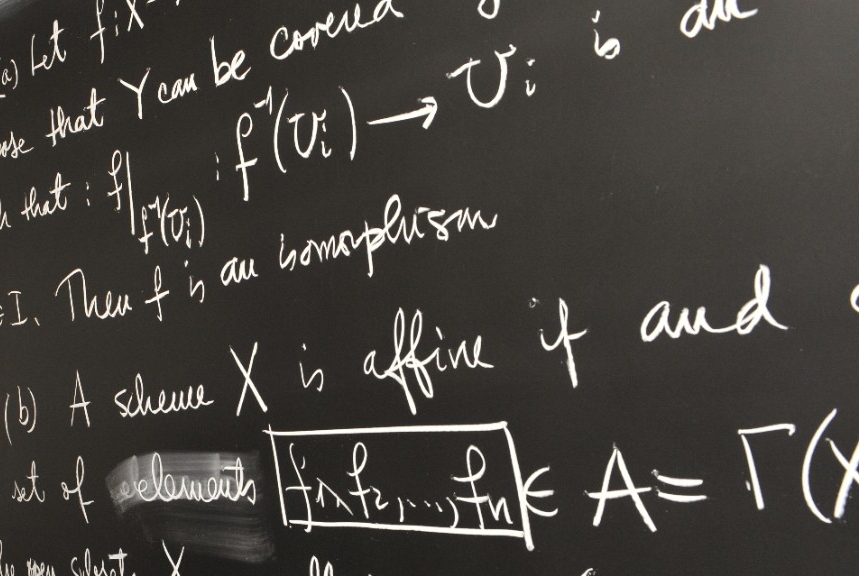 (a) Let f: X
that Y can be covered
that : f|_{f⁻¹(U_i)} : f⁻¹(U_i) → U_i is an
I. Then f is an isomorphism
(b) A scheme X is affine if and
set of elements f₁, f₂, ..., fₙ ∈ A = Γ(X
open subset X